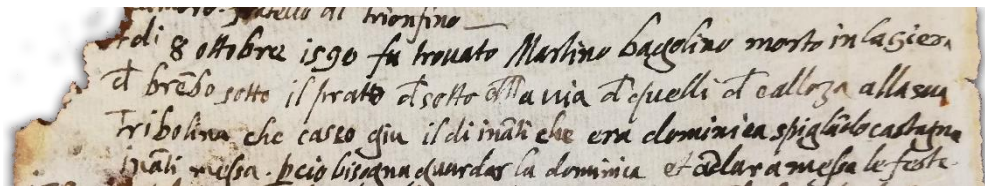 fratello di trionfino
Adi 8 ottobre 1590 fu trovato Martino bagolino morto in la giera
d brēbo sotto il prato d sotto dlla via d quelli d calloza alla sua
Tribolina che casco giu il di ināti che era dominica spiglādo castagne
ināti messa. p̄cio bisogna guardar la dominica et ādar a messa le feste